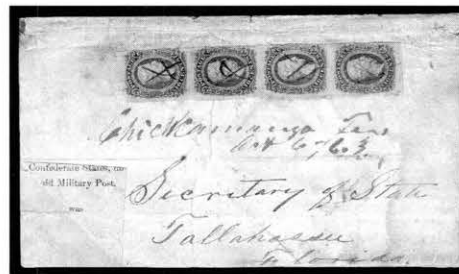 Chickamauga Ten
Oct 6 /63
Confederate States,
Military Post,
Secretary of State
Tallahassee
Florida.